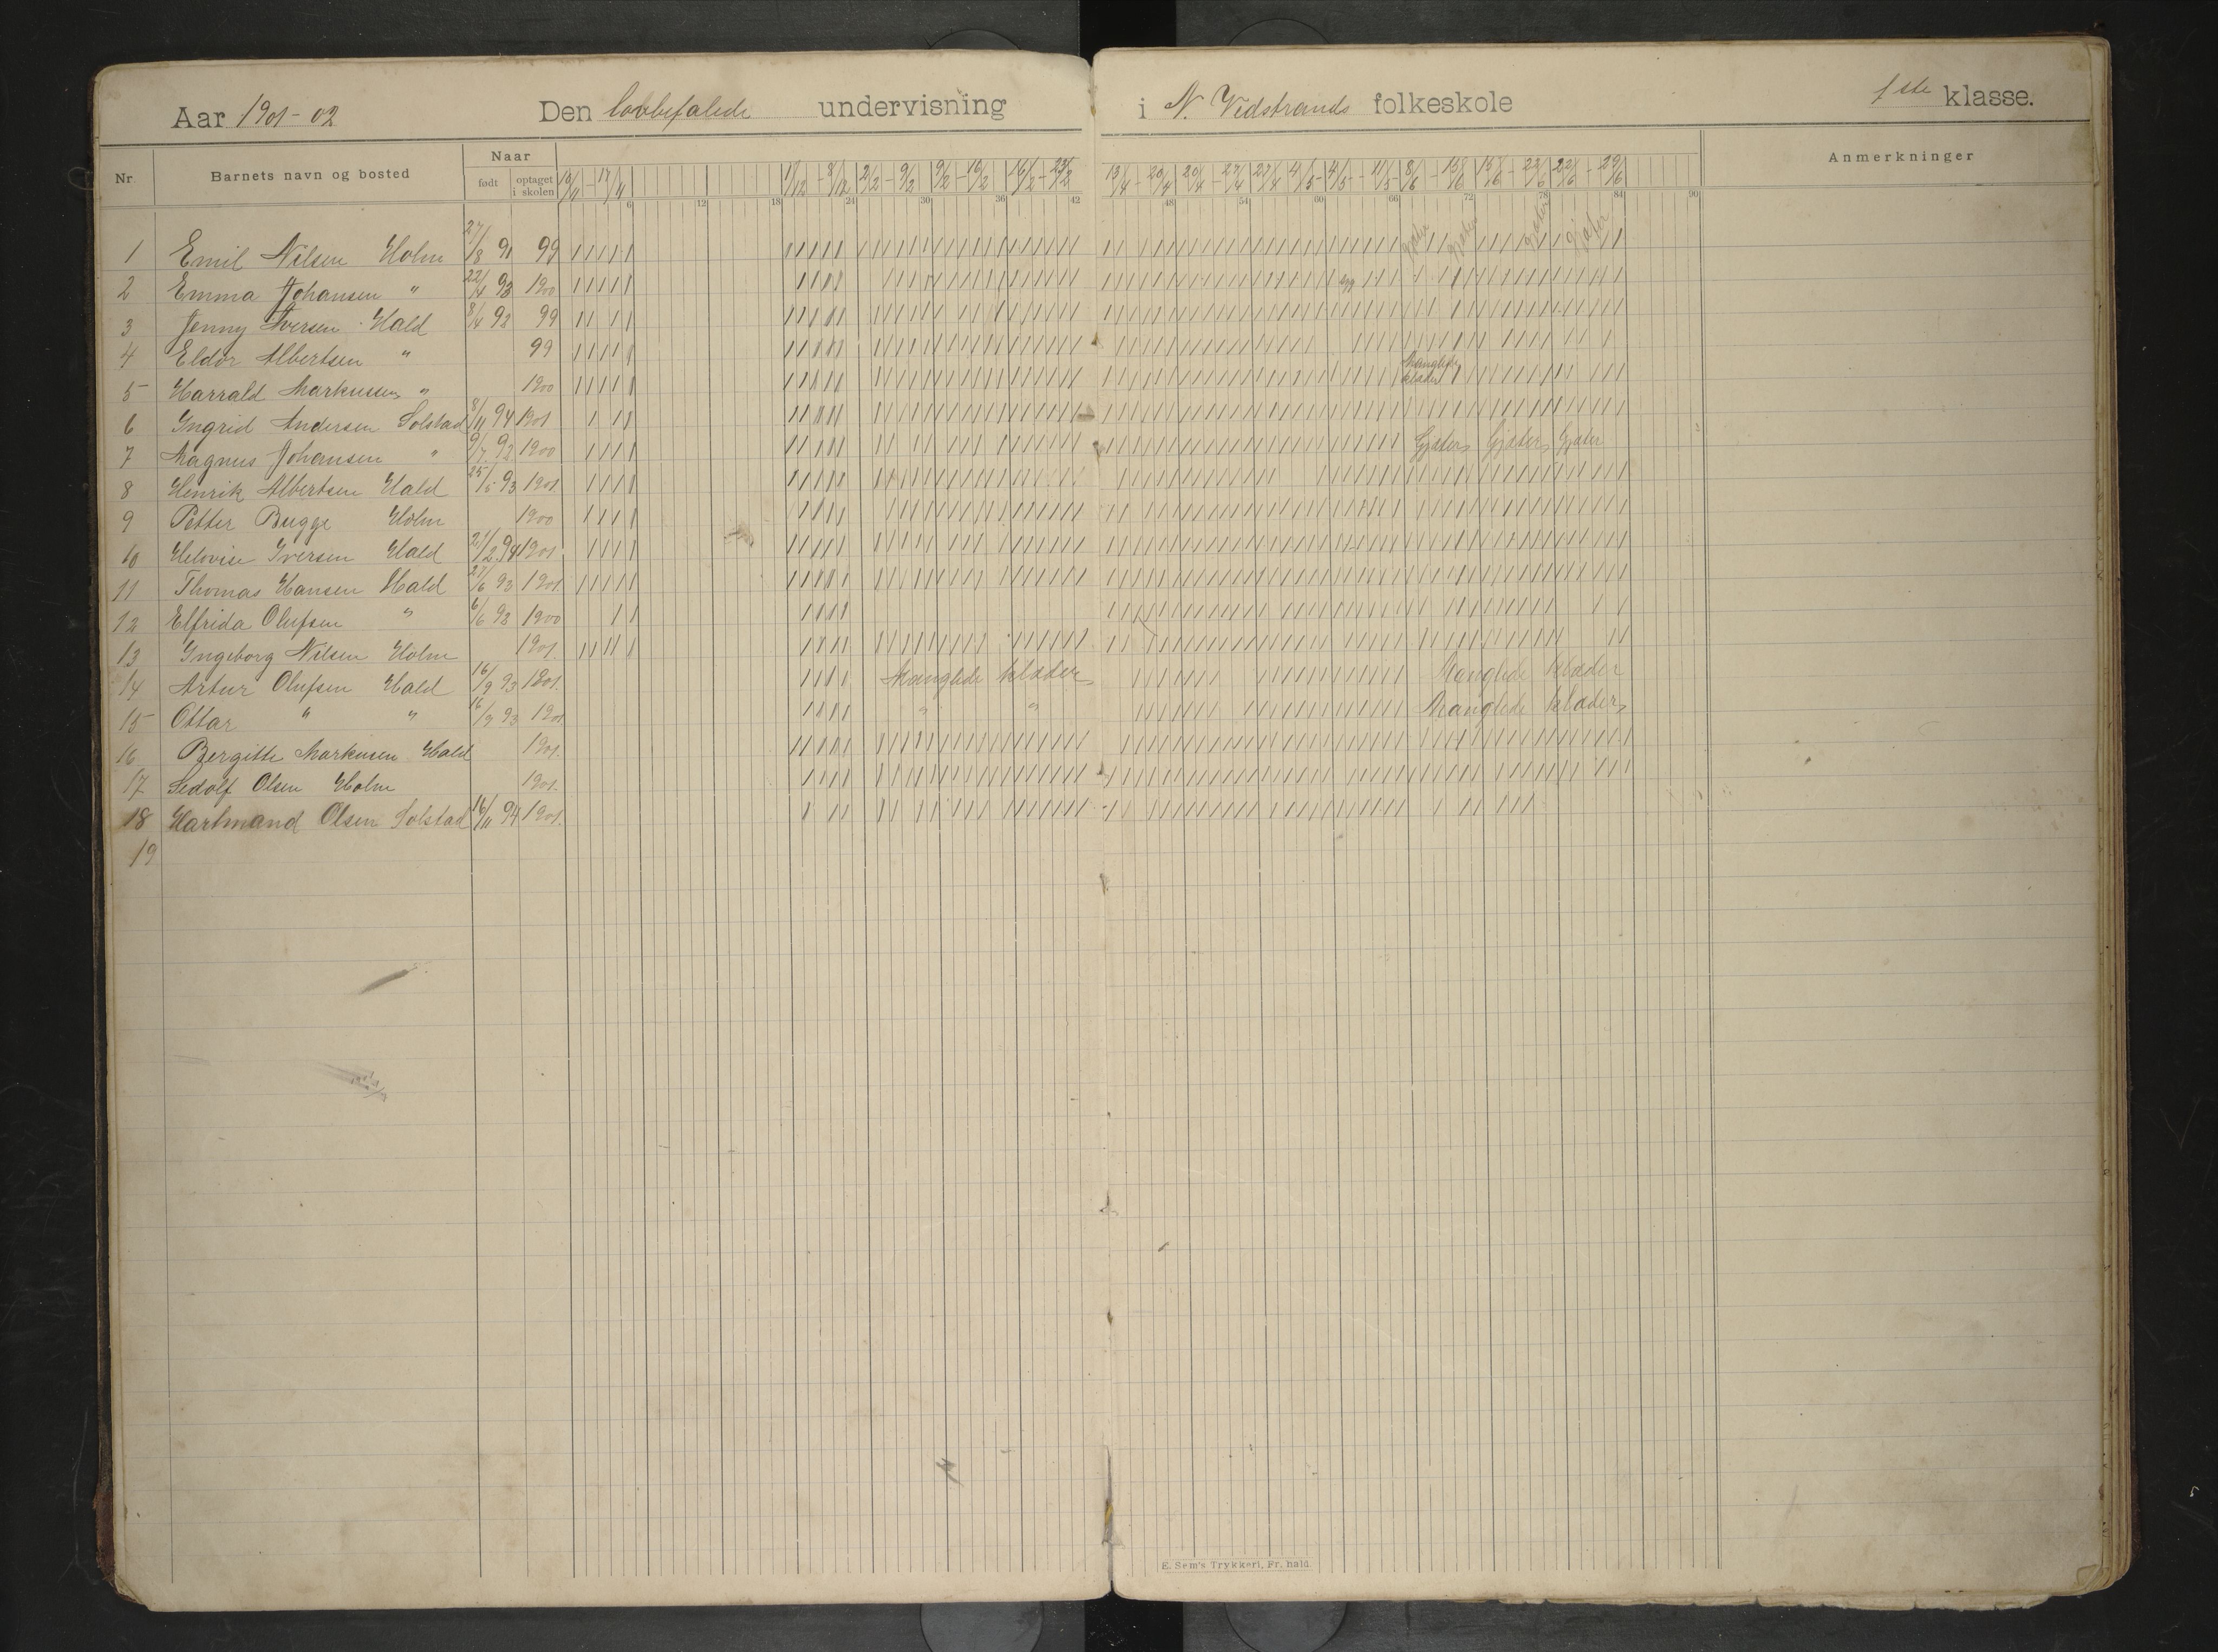 Aar 1901-02 Den lovbefalede undervisning i N. Vedstrands folkeskole 1ste klasse.
Nr. Barnets navn og bosted Naar født optaget i skolen Anmerkninger
10/11 - 17/11 1/12 - 8/12 2/2 - 9/2 9/2 - 16/2 16/2 - 23/2 13/4 - 20/4 20/4 - 27/4 27/4 - 4/5 4/5 - 11/5 8/6 - 15/6 15/6 - 22/6 22/6 - 29/6
6 12 18 24 30 36 42 48 54 60 66 72 78 84 90
1 Emil Nilsen Holm 27/8 91 99 gjæter gjæter gjæter gjæter
2 Emma Johansen " 22/4 93 1900 syg
3 Jenny Iversen Hald 8/4 93 99
4 Eldor Albertsen " 99
5 Harrald Markussen " 1900 Manglede klæder
6 Ingrid Andersen Solstad 8/11 94 1901
7 Magnus Johansen " 9/7 92 1900 Gjæter Gjæter Gjæter
8 Henrik Albertsen Hald 25/5 93 1901.
9 Petter Bugge Holm 1900
10 Helovise Iversen Hald 21/2 94 1901.
11 Thomas Hansen Hald 27/6 93 1901.
12 Elfrida Olufsen " 6/6 93 1900
13 Ingeborg Nilsen Holm 1901.
14 Artur Olufsen Hald 16/9 93 1801. Manglede klæder Manglede klæder
15 Ottar " " 16/9 93 1901 " " Manglede klæder
16 Bergitte Markusen Hald 1901.
17 Sedolf Olsen Holm 1901.
18 Hartmand Olsen Solstad 16/11 94 1901.
19
E. Sem's Trykkeri, Fr.hald.